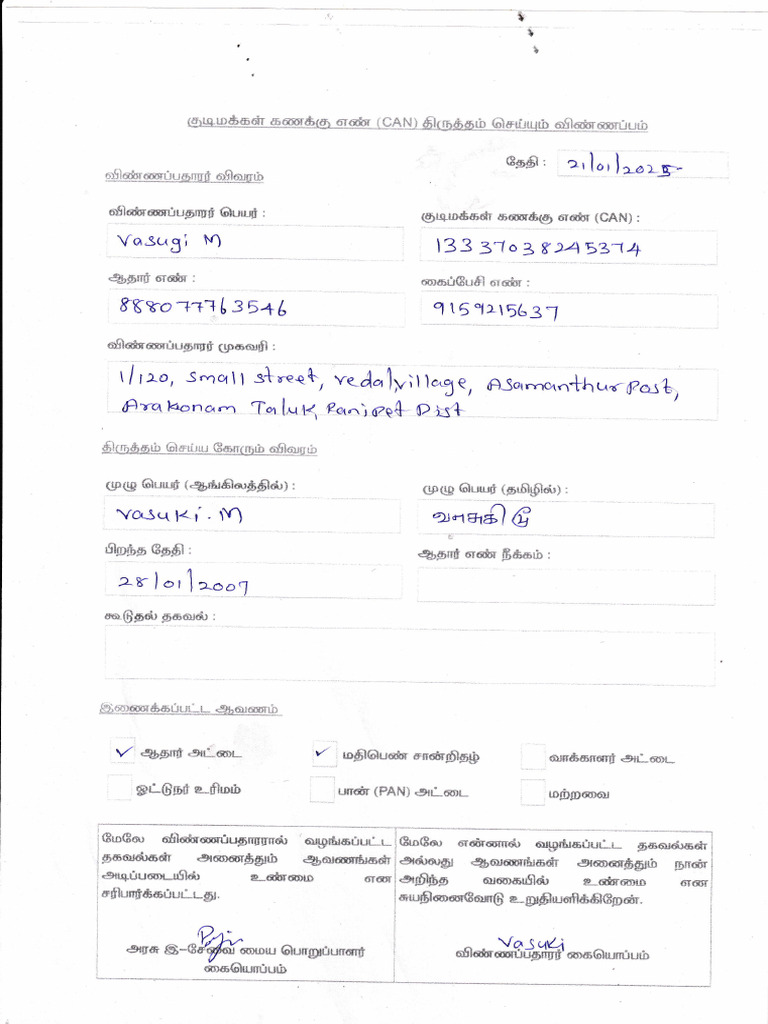 குடிமக்கள் கணக்கு எண் (CAN) திருத்தம் செய்யும் விண்ணப்பம்
தேதி : 21/01/2025
விண்ணப்பதாரர் விவரம்
விண்ணப்பதாரர் பெயர் : குடிமக்கள் கணக்கு எண் (CAN) :
Vasugi M 13337038245374
ஆதார் எண் : கைப்பேசி எண் :
888077763546 9159215637
விண்ணப்பதாரர் முகவரி :
1/120, Small Street, Vedal, Village, Asamanthur Post,
Arakonam Taluk, Ranipet Dist
திருத்தம் செய்ய கோரும் விவரம்
முழு பெயர் (ஆங்கிலத்தில்) : முழு பெயர் (தமிழில்) :
Vasuki. M வாசுகி மு
பிறந்த தேதி : ஆதார் எண் நீக்கம் :
28/01/2007
கூடுதல் தகவல் :
இணைக்கப்பட்ட ஆவணம்
✓ ஆதார் அட்டை ✓ மதிபெண் சான்றிதழ் வாக்காளர் அட்டை
ஓட்டுநர் உரிமம் பான் (PAN) அட்டை மற்றவை
மேலே விண்ணப்பதாரரால் வழங்கப்பட்ட
தகவல்கள் அனைத்தும் ஆவணங்கள்
அடிப்படையில் உண்மை என
சரிபார்க்கப்பட்டது.
அரசு இ-சேவை மைய பொறுப்பாளர்
கையொப்பம்
மேலே என்னால் வழங்கப்பட்ட தகவல்கள்
அல்லது ஆவணங்கள் அனைத்தும் நான்
அறிந்த வகையில் உண்மை என
சுயநினைவோடு உறுதியளிக்கிறேன்.
Vasuki
விண்ணப்பதாரர் கையொப்பம்